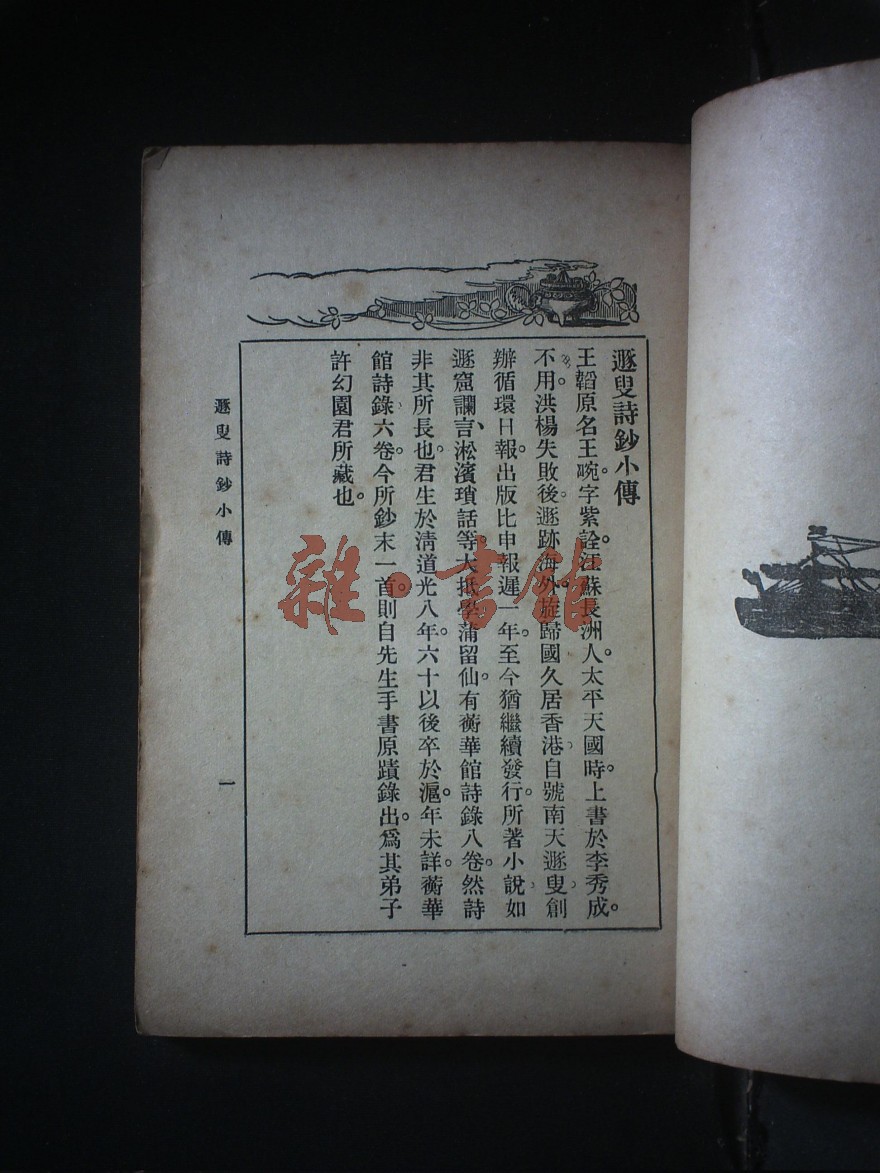 遯叟詩鈔小傳
王韜原名王畹。字紫詮。江蘇長洲人。太平天國時。上書於李秀成。
不用。洪楊失敗後。遯跡海外。旋歸國久居香港。自號南天遯叟。創
辦循環日報。出版比申報遲一年。至今猶繼續發行。所著小說。如
遯窟讕言、淞濱瑣話等。大抵學蒲留仙。有蘅華館詩錄八卷。然詩
非其所長也。君生於淸道光八年。六十以後卒於滬。年未詳。蘅華
館詩錄。六卷。今所鈔末一首。則自先生手書原蹟錄出。爲其弟子
許幻園君所藏也。
遯叟詩鈔小傳
一
雜·書館